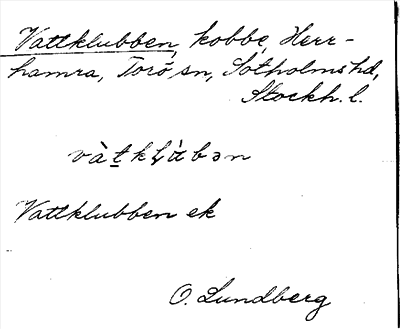 Vattklubben, kobbe, Herr-
hamra, Torö sn, Sotholms hd,
Stockh. l.
vàt̠kḷὰbən
Vattklubben ek
O. Lundberg